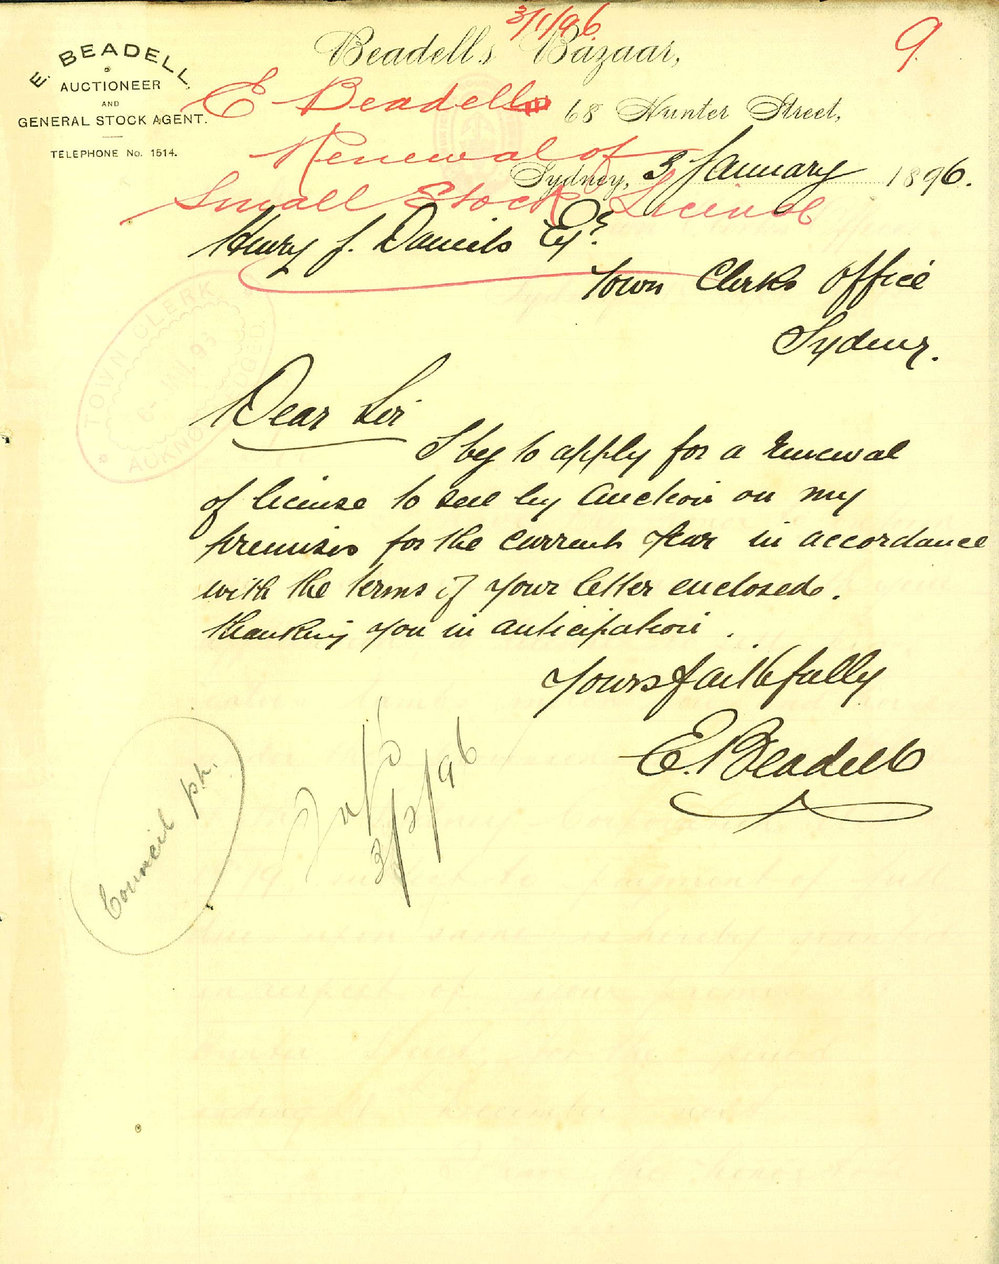 3/1/96
9.
E. BEADELL,
AUCTIONEER
AND
GENERAL STOCK AGENT.
TELEPHONE No. 1514.
Beadell's Bazaar,
68 Hunter Street,
Sydney, 3 January 1896.
E Beadell
Renewal of
Small Stock License
Henry J. Daniels Esqr.
Town Clerks Office
Sydney.
TOWN CLERK
6 JAN. 96
Dear Sir
I beg to apply for a renewal
of license to sell by Auction on my
premises for the current year in accordance
with the terms of your letter enclosed.
thanking you in anticipation.
Yours faithfully
E. Beadell
Council ph.
3/2/96